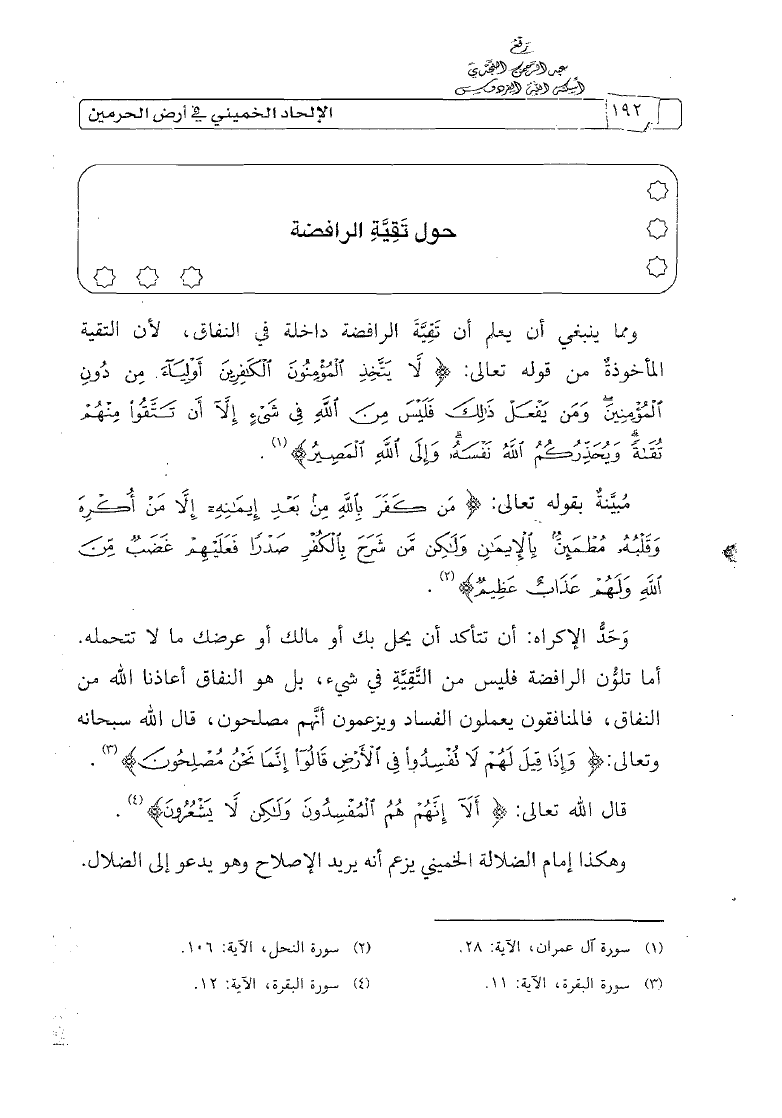 رَفْعُ
عبد الرحمن النجدي
أسكنه الله الفردوس
١٩٢
الإلحاد الخميني في أرض الحرمين
حول تَقِيَّةِ الرافضة
ومما ينبغي أن يعلم أن تَقِيَّةَ الرافضة داخلة في النفاق، لأن التقية
المأخوذةٌ من قوله تعالى: ﴿ لَّا يَتَّخِذِ ٱلْمُؤْمِنُونَ ٱلْكَٰفِرِينَ أَوْلِيَآءَ مِن دُونِ
ٱلْمُؤْمِنِينَۖ وَمَن يَفْعَلْ ذَٰلِكَ فَلَيْسَ مِنَ ٱللَّهِ فِى شَىْءٍ إِلَّآ أَن تَتَّقُواْ مِنْهُمْ
تُقَىٰةًۗ وَيُحَذِّرُكُمُ ٱللَّهُ نَفْسَهُۥۗ وَإِلَى ٱللَّهِ ٱلْمَصِيرُ﴾(١).
مُبيَّنةٌ بقوله تعالى: ﴿ مَن كَفَرَ بِٱللَّهِ مِنۢ بَعْدِ إِيمَٰنِهِۦٓ إِلَّا مَنْ أُكْرِهَ
وَقَلْبُهُۥ مُطْمَئِنٌّۢ بِٱلْإِيمَٰنِ وَلَٰكِن مَّن شَرَحَ بِٱلْكُفْرِ صَدْرًا فَعَلَيْهِمْ غَضَبٌ مِّنَ
ٱللَّهِ وَلَهُمْ عَذَابٌ عَظِيمٌ﴾(٢).
وَحَدُّ الإكراه: أن تتأكد أن يحل بك أو مالك أو عرضك ما لا تتحمله.
أما تلوُّن الرافضة فليس من التَّقِيَّةِ في شيء، بل هو النفاق أعاذنا الله من
النفاق، فالمنافقون يعملون الفساد ويزعمون أنَّهم مصلحون، قال الله سبحانه
وتعالى: ﴿ وَإِذَا قِيلَ لَهُمْ لَا تُفْسِدُواْ فِى ٱلْأَرْضِ قَالُوٓاْ إِنَّمَا نَحْنُ مُصْلِحُونَ﴾(٣).
قال الله تعالى: ﴿ أَلَآ إِنَّهُمْ هُمُ ٱلْمُفْسِدُونَ وَلَٰكِن لَّا يَشْعُرُونَ﴾(٤).
وهكذا إمام الضلالة الخميني يزعم أنه يريد الإصلاح وهو يدعو إلى الضلال.
(١) سورة آل عمران، الآية: ٢٨.
(٢) سورة النحل، الآية: ١٠٦.
(٣) سورة البقرة، الآية: ١١.
(٤) سورة البقرة، الآية: ١٢.